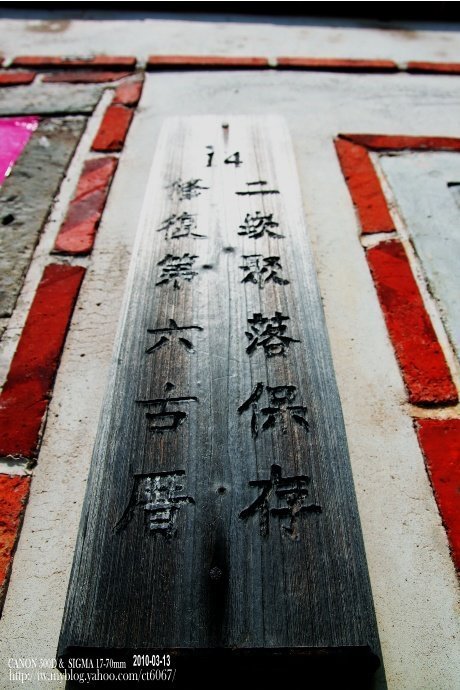 i4
二崁聚落保存
修復第六古厝
CANON 300D & SIGMA 17-70mm 2010-03-13
http://tw.myblog.yahoo.com/ct6067/